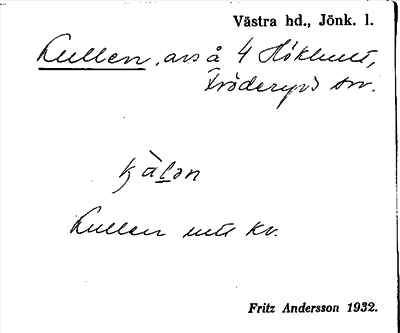 Västra hd., Jönk. l.
Kullen, avs å 4 Hökhult,
Fröderyds sn.
Kullen uti kv.
Fritz Andersson 1932.